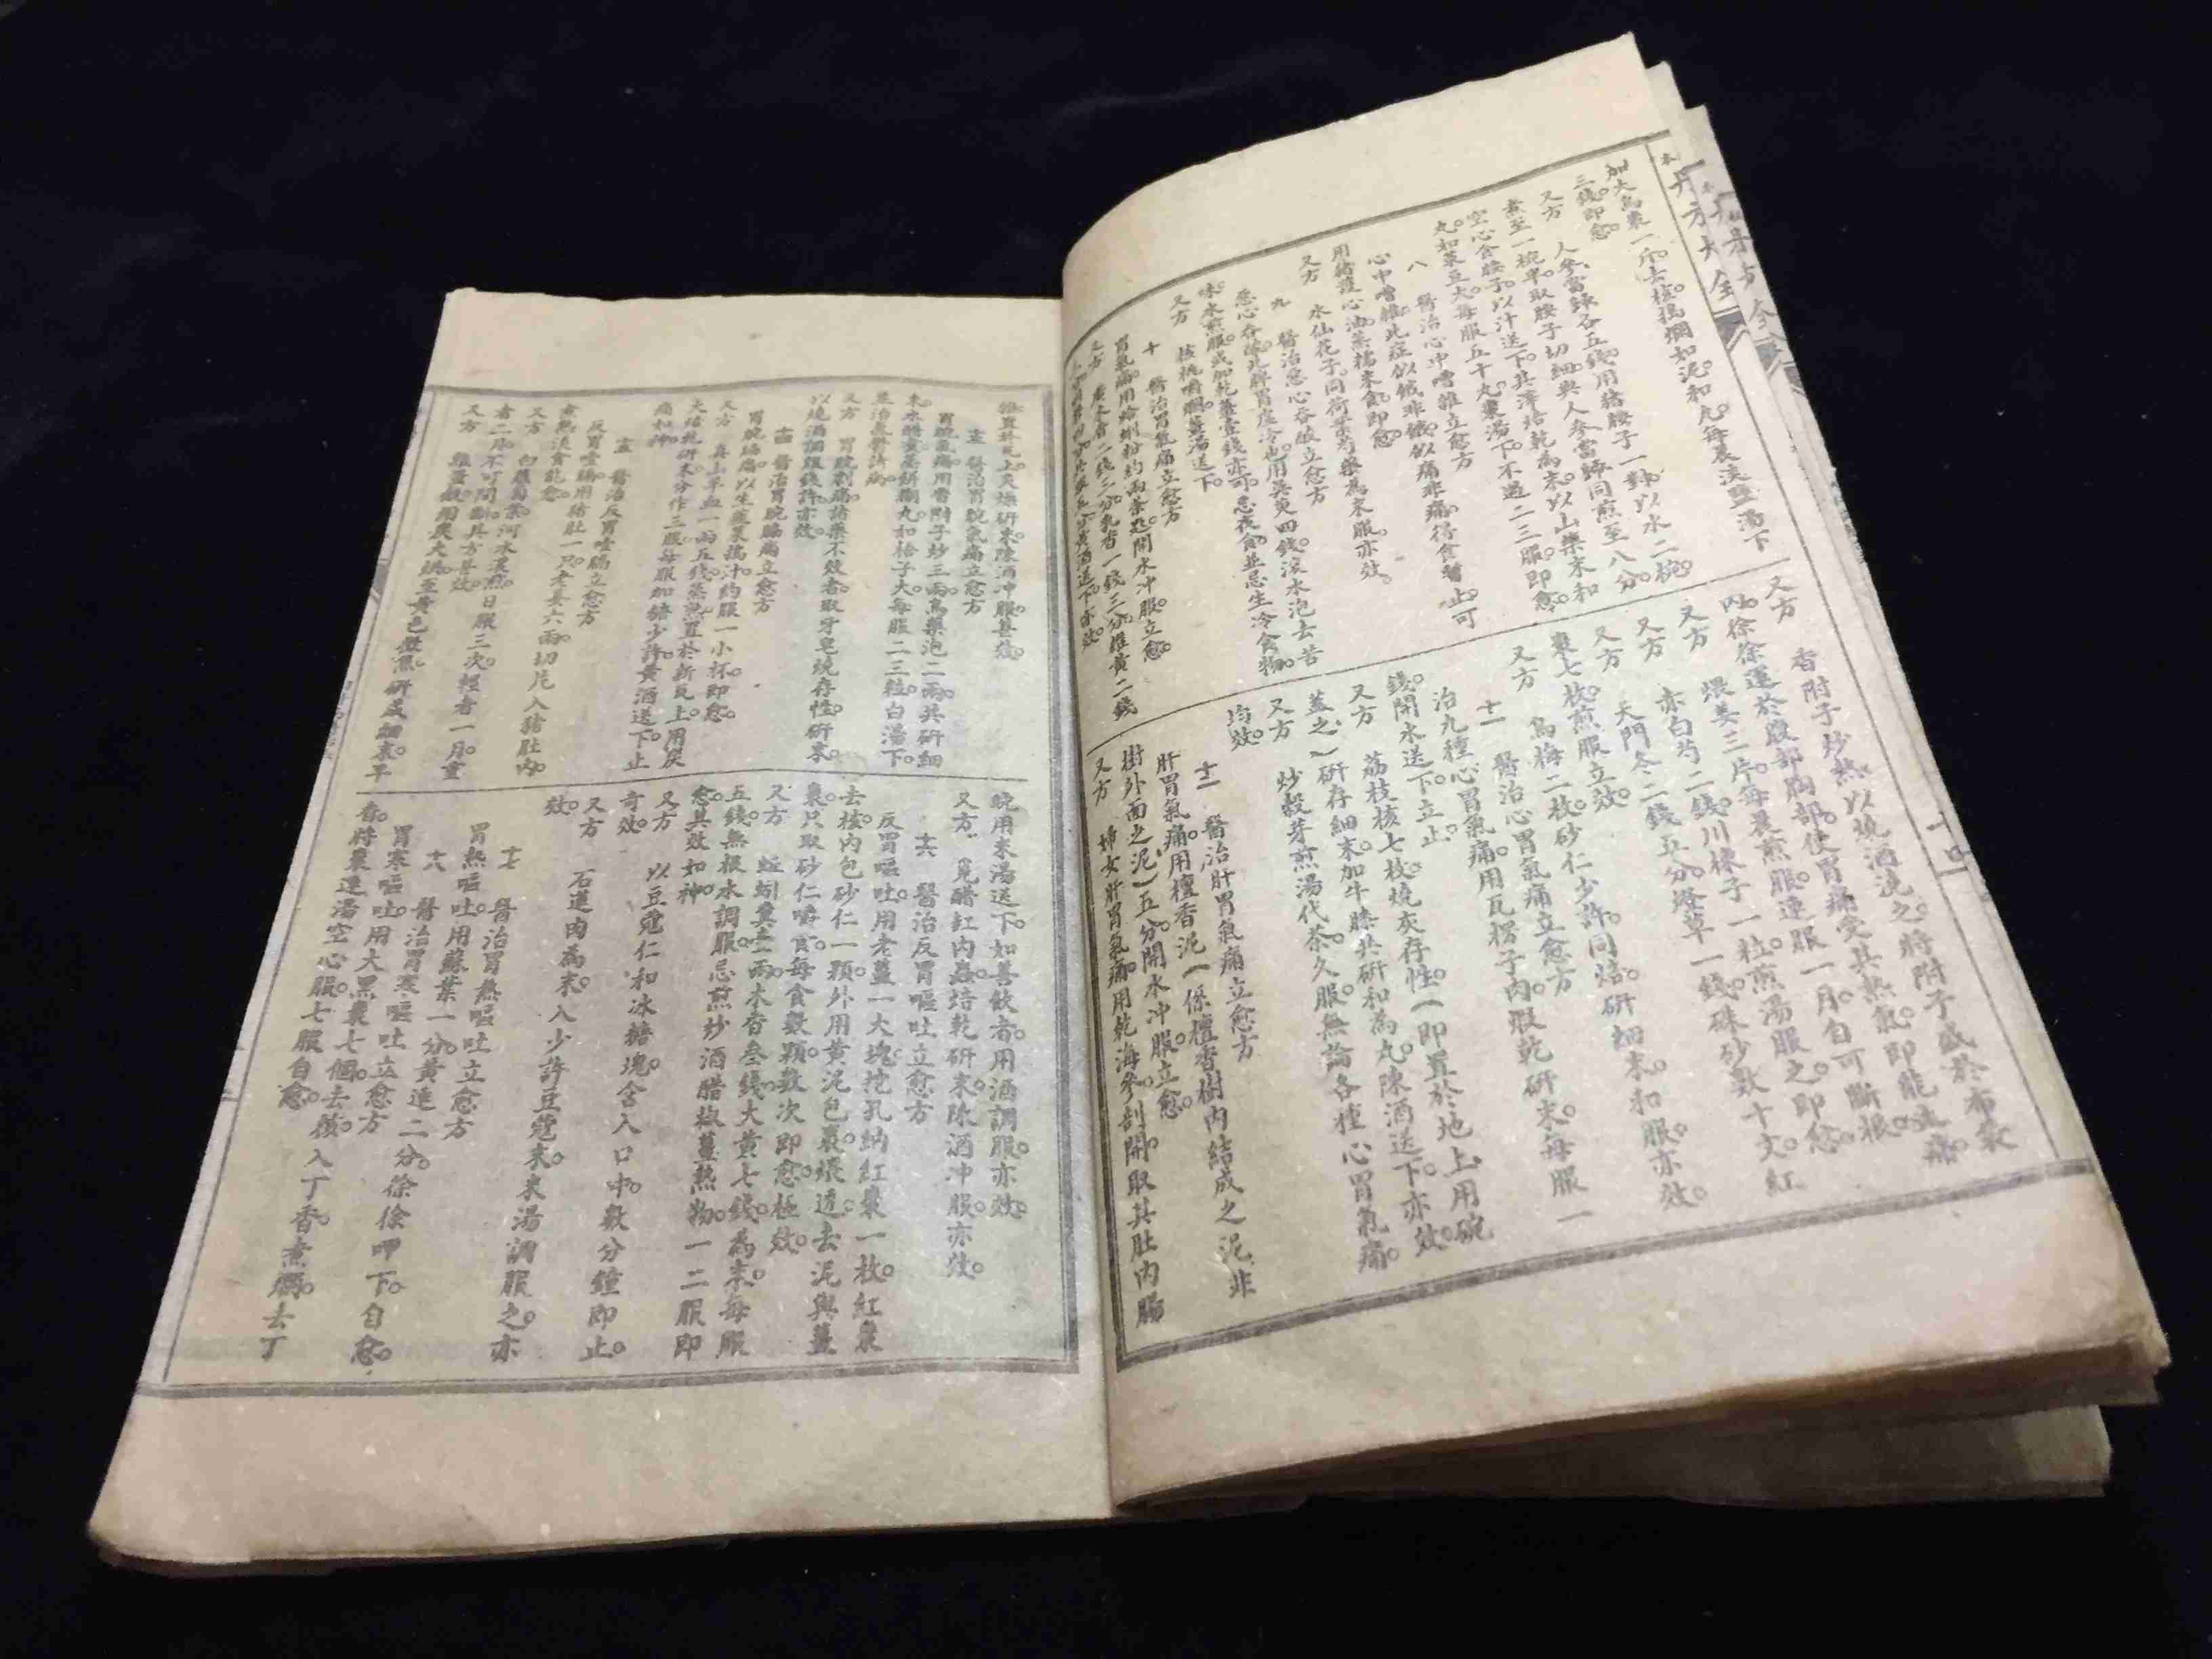 丹方大全
加大烏棗一斤。去核搗爛如泥和丸。每晨淡鹽湯下
三錢。即愈。
又方 人參當歸各五錢。用豬腰子一對。以水二碗。
煮至一碗半。取腰子切細。與人參當歸同煎至八分。
空心食腰子。以汁送下。其滓焙乾為末。以山藥末和
丸。如菉豆大。每服五十丸。棗湯下。不過二三服。即愈。
八 醫治心中嘈雜立愈方
心中嘈雜。此症似餓非餓。似痛非痛。得食暫止。可
用豬護心油。蒸糯米食。即愈。
又方 水仙花子。同荷葉芍藥為末服。亦效。
九 醫治惡心吞酸立愈方
惡心吞酸。此脾胃虛冷也。用吳萸四錢。滾水泡去苦
味。水煎服。或加乾薑壹錢。亦可。忌夜食。並忌生冷食物。
又方 核桃嚼爛。薑湯送下。
十 醫治胃氣痛立愈方
胃氣痛。用蛤蜊粉約兩茶匙。開水冲服。立愈。
又方 廣木香二錢三分。乳香一錢三分。雄黃二錢
又方 香附子炒熱。以燒酒澆之。將附子盛於布袋
內。徐徐運於腹部胸部。使胃痛受其熱氣。即能止痛。
又方 煨姜三片。每晨煎服。連服一月。自可斷根。
又方 赤白芍二錢。川楝子一粒。煎湯服之。即愈。
又方 天門冬二錢五分。燈草一錢。硃砂數十文。紅
棗七枚。煎服立效。
又方 烏梅二枚。砂仁少許。同焙。研細末。和服。亦效。
十一 醫治心胃氣痛立愈方
治九種心胃氣痛。用瓦楞子肉。煅乾研末。每服一
錢。開水送下。立止。
又方 荔枝核七枚。燒灰存性。(即置於地上。用碗
蓋之)研存細末。加牛膝共研和為丸。陳酒送下。亦效。
又方 炒穀芽煎湯代茶。久服。無論各種心胃氣痛。
均效。
十二 醫治肝胃氣痛立愈方
肝胃氣痛。用檀香泥(係檀香樹內結成之泥。非
樹外面之泥)五分。開水冲服。立愈。
又方 婦女肝胃氣痛。用乾海參。剖開取其肚內腸
十四
雜。置於瓦上灸燥。研末。陳酒冲服。甚效。
十三 醫治胃脘氣痛立愈方
胃脘氣痛。用香附子炒三兩。烏藥泡二兩。共研細
末。水醋煮蒸餅。擱丸如梧子大。每服二三粒。白湯下。
並治氣鬱諸病。
又方 胃脘劇痛。諸藥不效者。取牙皂燒存性。研末。
以燒酒調服錢許。亦效。
十四 醫治胃脘腸痛立愈方
胃脘腸痛。以生鹿末搗汁。約服一小杯。即愈。
又方 真山羊血一兩五錢。蒸熟。置於新瓦上。用炭
火焙乾。研末。分作三服。每服加糖少許。黃酒送下。止
痛如神。
十五 醫治反胃噎膈立愈方
反胃噎膈。用豬肚一只。老姜六兩。切片。入豬肚內。
煮熟淡食。能愈。
又方 白蘿蔔葉。河水濃煎。日服三次。輕者一月。重
者二月。不可間斷。其方甚效。
又方 雞蛋殼。用炭火烘至黃色。微焦。研成細末。早
晚用米湯送下。如善飲者。用酒調服。亦效。
又方 覓醋缸內蟲。焙乾研末。陳酒冲服。亦效。
十六 醫治反胃嘔吐立愈方
反胃嘔吐。用老薑一大塊。挖孔納紅棗一枚。紅棗
去核。內包砂仁一顆。外用黃泥包裹。煨透。去泥與薑
棗。只取砂仁嚼食。每食數顆。數次即愈。極效。
又方 蚯蚓糞壹兩。木香叁錢。大黃七錢。為末。每服
五錢。無根水調服。忌煎炒酒醋椒薑熱物。一二服即
愈。其效如神。
又方 以豆蔻仁和冰糖塊。含入口中。數分鐘即止。
奇效。
又方 石蓮肉為末。入少許豆蔻末。米湯調服之。亦
效。
十七 醫治胃熱嘔吐立愈方
胃熱嘔吐。用蘇葉一分。黃連二分。徐徐呷下。自愈。
十八 醫治胃寒嘔吐立愈方
胃寒嘔吐。用大黑棗七個。去核。入丁香。煮爛。去丁
香。將棗連湯空心服。七服自愈。